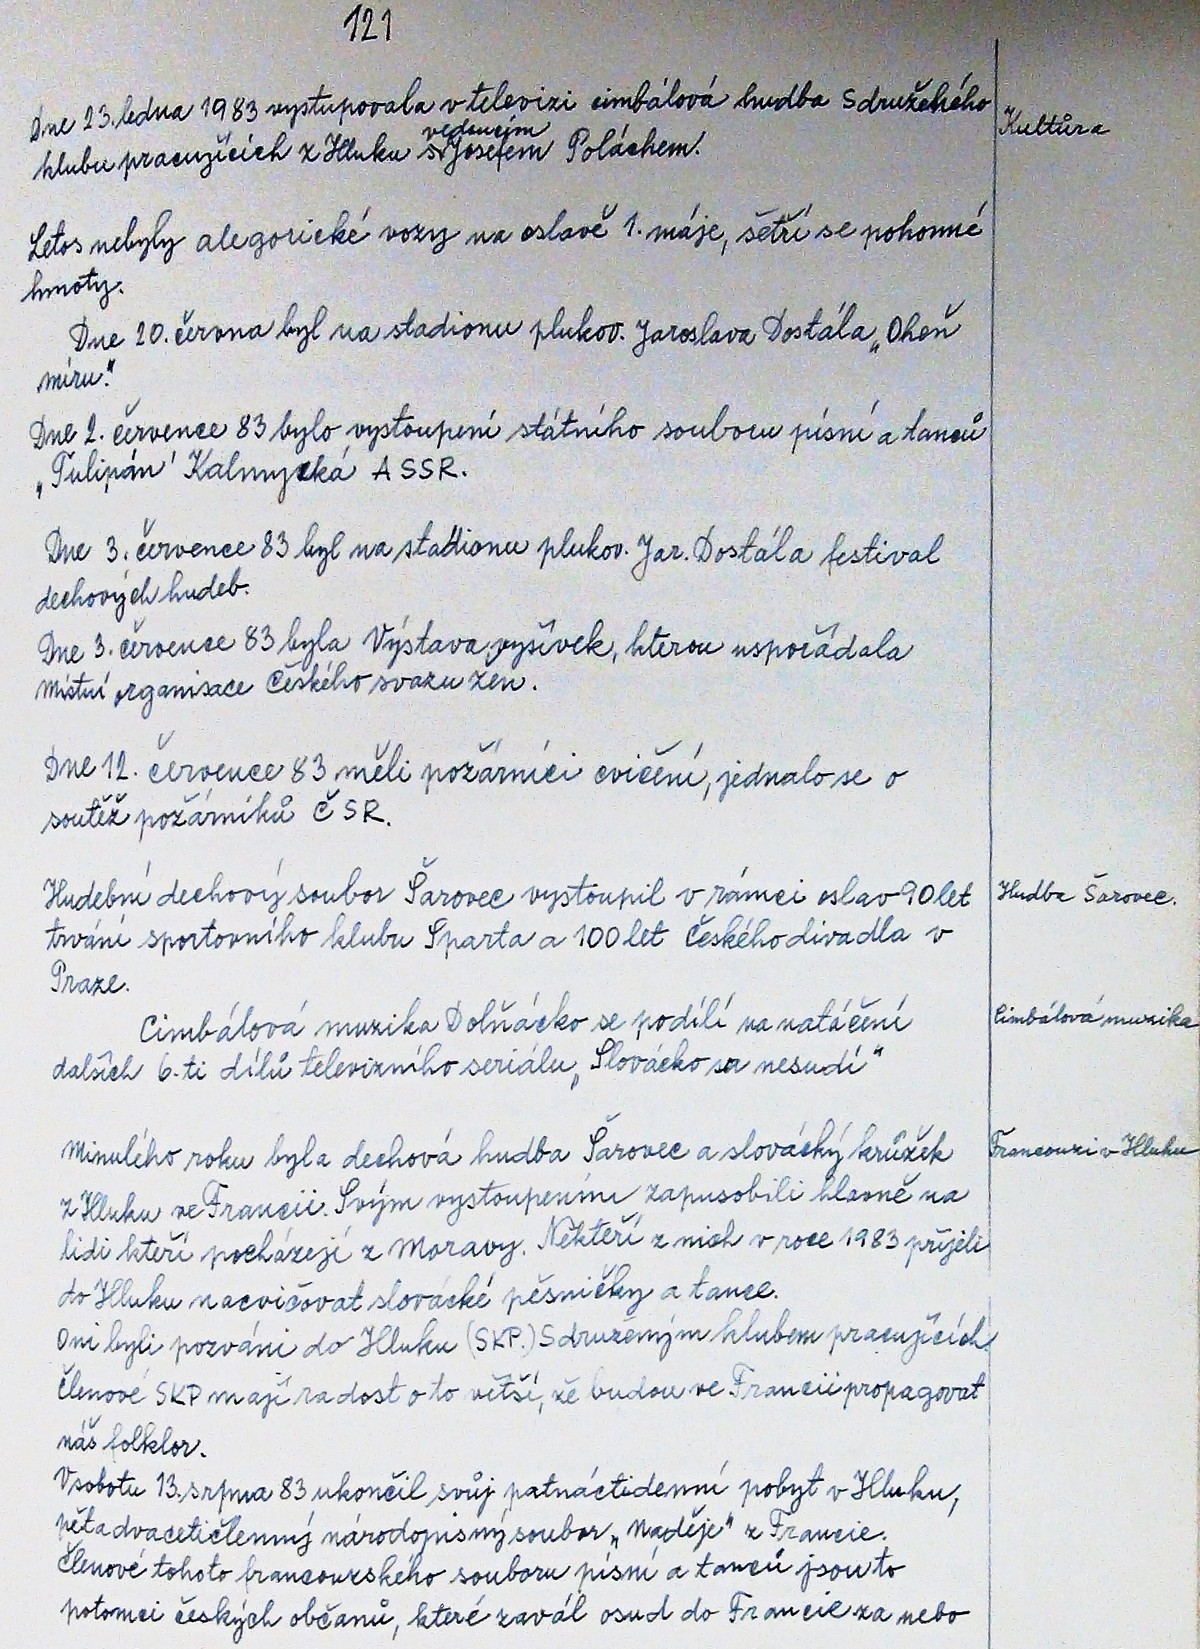 121
Dne 23. ledna 1983 vystupovala v televizi cimbálová hudba Sdruženého
Kultůra
vedoucím
klubu pracujících z Hluku s Josefem Poláchem.
Letos nebyly alegorické vozy na oslavě 1. máje, šetří se pohonné
hmoty.
Dne 20. června byl na stadionu plukov. Jaroslava Dostála „Oheň
míru."
Dne 2. července 83 bylo vystoupení státního souboru písní a tanců
„Tulipán' Kalmycká ASSR.
Dne 3. července 83 byl na stadionu plukov. Jar. Dostála festival
dechových hudeb.
Dne 3. července 83 byla Výstava vyšívek, kterou uspořádala
Místní organisace Českého svazu žen.
Dne 12. července 83 měli požárníci cvičení, jednalo se o
soutěž požárníků ČSR.
Hudební dechový soubor Šarovec vystoupil v rámci oslav 90 let
Hudba Šarovec.
trvání sportovního klubu Sparta a 100 let Českého divadla v
Praze.
Cimbálová muzika Dolňácko se podílí na natáčení
Cimbálová muzika
dalších 6-ti dílů televizního seriálu „Slovácko sa nesudí"
Minulého roku byla dechová hudba Šarovec a slovácký krůžek
Francouzi v Hluku
z Hluku ve Francii. Svým vystoupením zapusobili hlavně na
lidi kteří pocházejí z Moravy. Někteří z nich v roce 1983 přijeli
do Hluku nacvičovat slovácké pěsničky a tance.
Oni byli pozváni do Hluku (SKP.) Sdruženým klubem pracujících
Členové SKP mají radost o to větší, že budou ve Francii propagovat
náš folklor.
V sobotu 13. srpna 83 ukončil svůj patnáctidenní pobyt v Hluku,
pětadvacetičlenný národopisný soubor „Naděje" z Francie.
Členové tohoto francouzského souboru písní a tanců jsou to
potomci českých občanů, které zavál osud do Francie za nebo